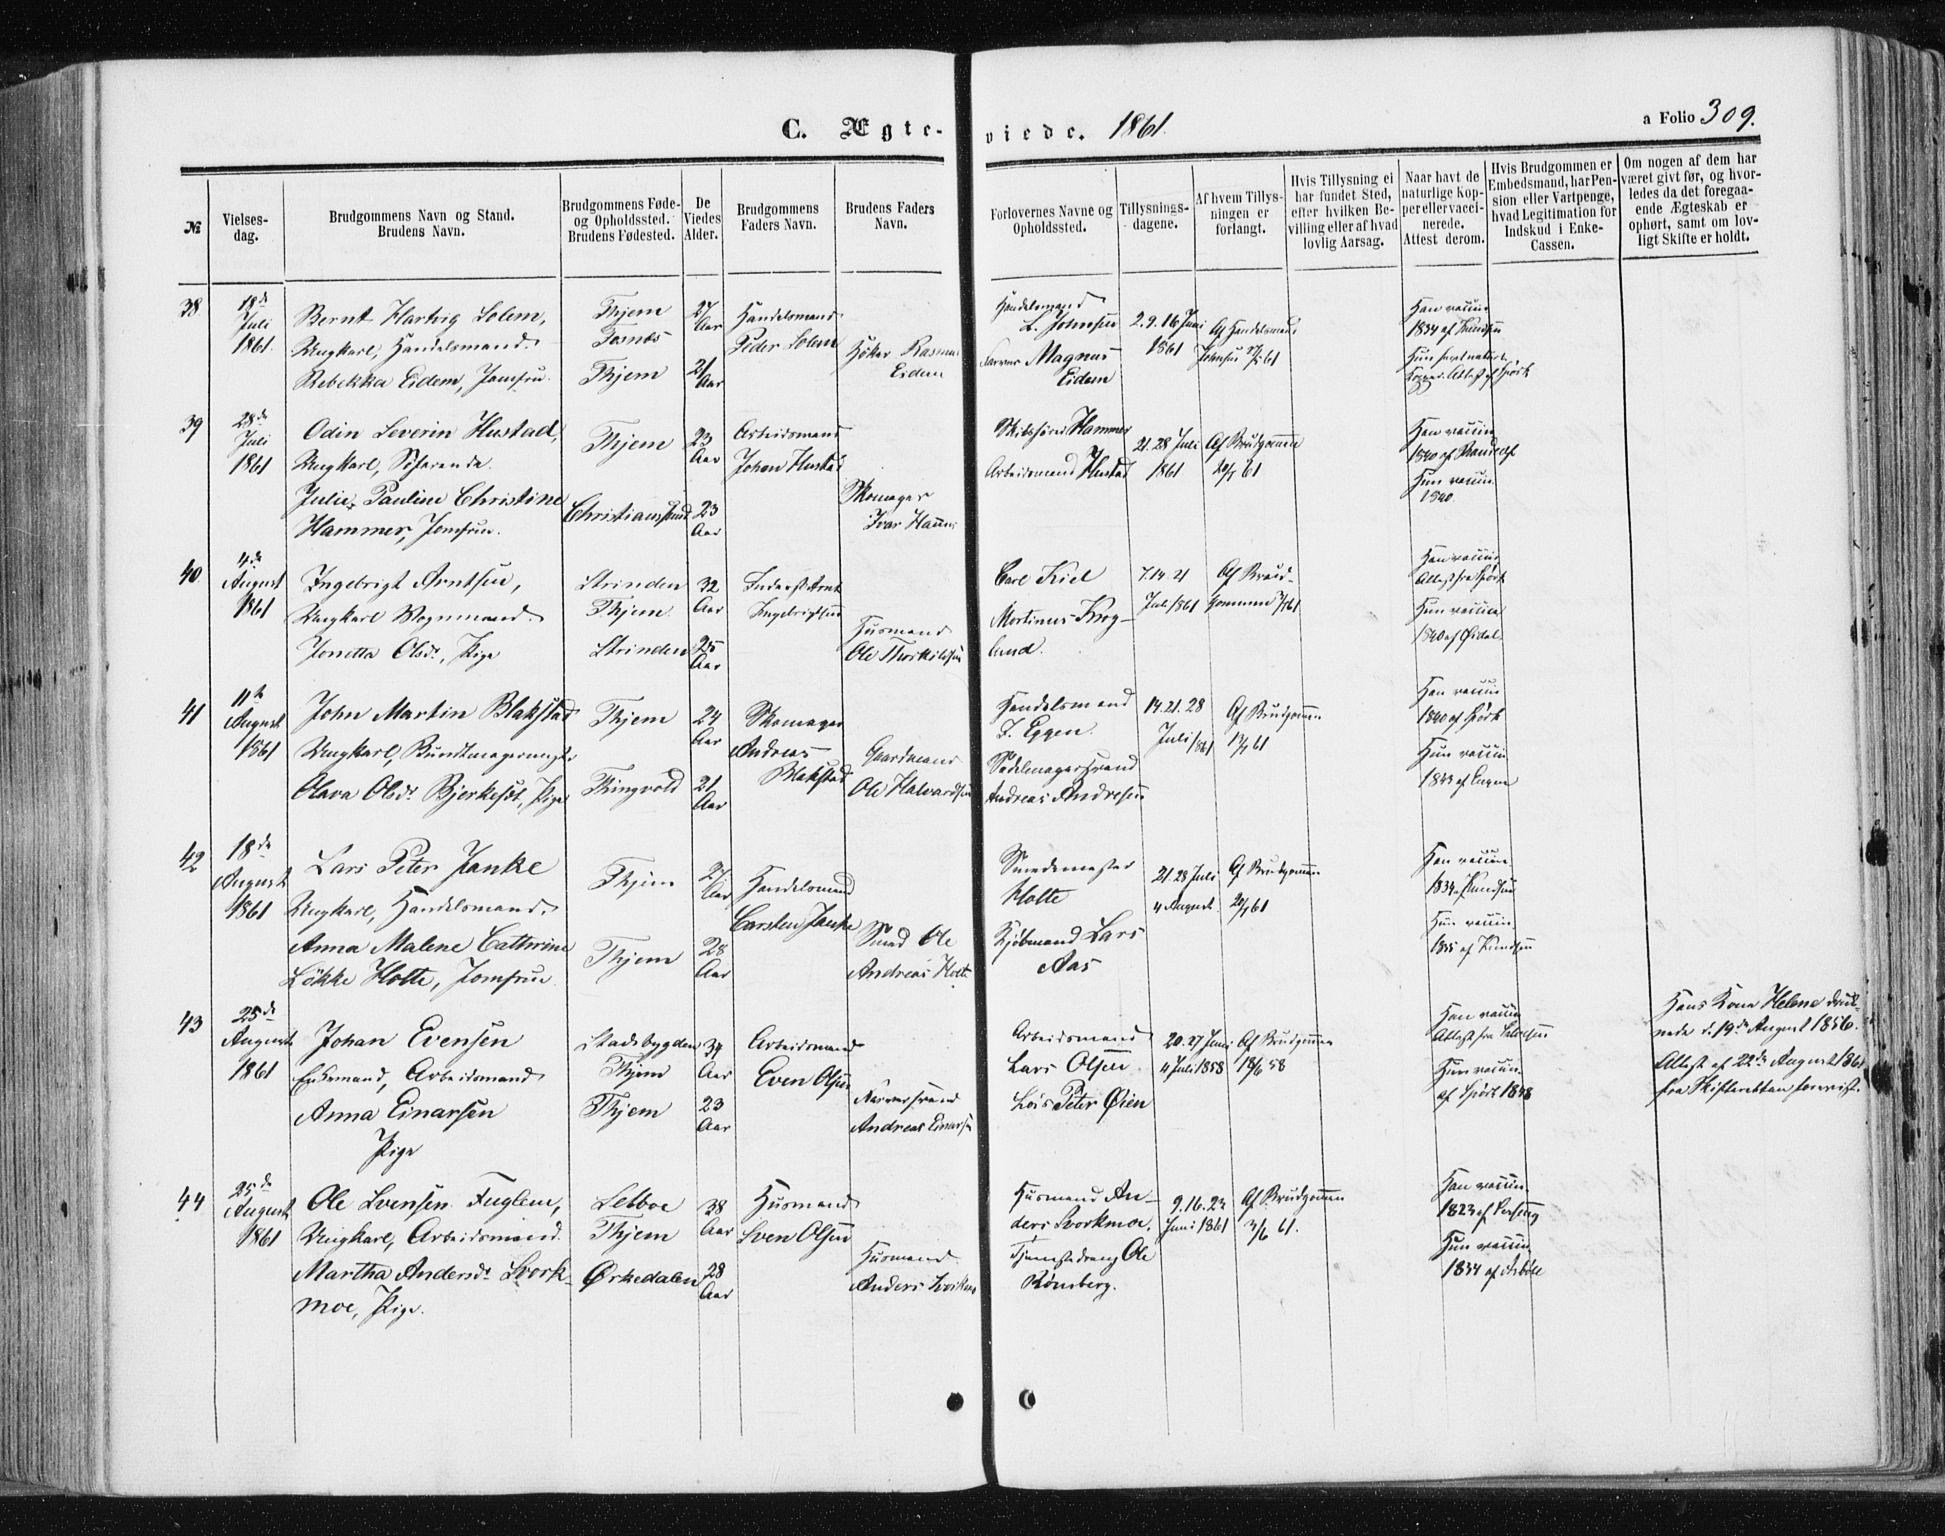 C. Ægte-viede. 1861.
a Folio 309.
№
Vielses-
dag.
Brudgommens Navn og Stand.
Brudens Navn.
Brudgommens Føde-
og Opholdssted.
Brudens Fødested.
De
Viedes
Alder.
Brudgommens
Faders Navn.
Brudens Faders
Navn.
Forlovernes Navne og
Opholdssted.
Tillysnings-
dagene.
Af hvem Tillys-
ningen er
forlangt.
Hvis Tillysning ei
har fundet Sted,
efter hvilken Be-
villing eller af hvad
lovlig Aarsag.
Naar havt de
naturlige Kop-
per eller vacci-
nerede.
Attest derom.
Hvis Brudgommen er
Embedsmand, har Pen-
sion eller Vartpenge,
hvad Legitimation for
Indskud i Enke-
Cassen.
Om nogen af dem har
været givt før, og hvor-
ledes da det foregaa-
ende Ægteskab er
ophørt, samt om lov-
ligt Skifte er holdt.
38
18de
Juli
1861.
Bernt Hartvig Solem,
Ungkarl, Handelsmand.
Rebekka Eidem, Jomfru.
Thjem
Fosnæs
Thjem
27
Aar
21
Aar
Handelsmand
Peder Solem
Høker Rasmus
Eidem
Handelsmand
L. Johnsen
Farver Magnus
Eidem
2. 9. 16 Juni
1861
Af Handelsmand
Johnsen
Han vaccin
1834 af Knudsen
39
28de
Juli
1861
Odin Severin Hustad,
Ungkarl, Søfarende.
Julie Pauline Christine
Hammer, Jomfrue.
Thjem
Christianssund
23
Aar
23
Aar
Arbeidsmand
Johan Hustad
Skomager
Ivar Hammer
Skibsfører Hammer
Arbeidsmand Hustad
21. 28 Juli
1861
Af Brudgommen
20/7 61
Han vaccin
1840 af
Hun vaccin
1840.
40
4de
August
1861
Ingebrigt Arntsen,
Ungkarl Vognmand.
Jonetta Olsdr, Pige
Strinden
Thjem.
Strinden
32
Aar
25
Aar
Inderst Arnt
Ingebrigtsen
Husmand
Ole Thorkildsen
Carl Kiel
Martinus Krog-
lund.
7. 14. 21
Juli 1861
Af Brud-
gommen
Han vaccin
Attest fra Spörk
Hun vaccin
1840 af
41
11te
August
1861
John Martin Blakstad
Ungkarl, Buntmagersvend.
Olava Olsdr Bjerkeset, Pige
Thjem
Thingvold
24
Aar
21
Aar
Skomager
Andreas
Blakstad
Gaardmand
Ole Halvardsen
Handelsmand
Eggen.
Sadelmagersvend
Andreas Andresen
14. 21. 28
Juli 1861
Af Brudgommen
13/7 61
Han vaccin
1840 af Spörk
Hun vaccin
1843 af
42
18de
August
1861
Lars Peter Janke
Ungkarl, Handelsmand.
Anna Malene Cathrine
Løkke Holte, Jomfrue
Thjem
Thjem
27
Aar
28
Aar
Handelsmand
Carsten Janke
Smed Ole
Andreas Holte
Smedemester
Holte
Kjøbmand Lars
Aas
21. 28 Juli
4 August
Af Brudgommen
20/7 61
Han vaccin
1834 af Knudsen
Hun vaccin
1835 af Knudsen
43
25de
August
1861
Johan Evensen
Enkemand, Arbeidsmand
Anna Einarsen
Pige
Stadsbygden
Thjem
Thjem
34
Aar
23
Aar
Arbeidsmand
Even Olsen
Farversvend
Andreas Einarsen
Arbeidsmand
Lars Olsen.
Peter Øien
20. 27 Juni
4 Juli 1858
Af Brudgommen
18/6 58
Han vaccin
Attest fra
Hun vaccin
af Spörk 1838
Hans Kone Helene druk-
nede d. 19de August 1856.
Attest af 22de August 1861
fra Skifteretten forevist.
44
25de
August
1861
Ole Svensen Fuglem,
Ungkarl, Arbeidsmand.
Martha Andersdr Svork-
moe, Pige.
Selboe
Thjem
Ørkedalen
38
Aar
28
Aar
Husmand
Sven Olsen
Husmand
Anders Svorkmo
Husmand An-
ders Svorkmoe.
Tjenestedreng Ole
Rønsberg.
9. 16. 23
Juni 1861
Af Brudgommen
3/6 61.
Han vaccin
1823 af
Hun vaccin
1834 af